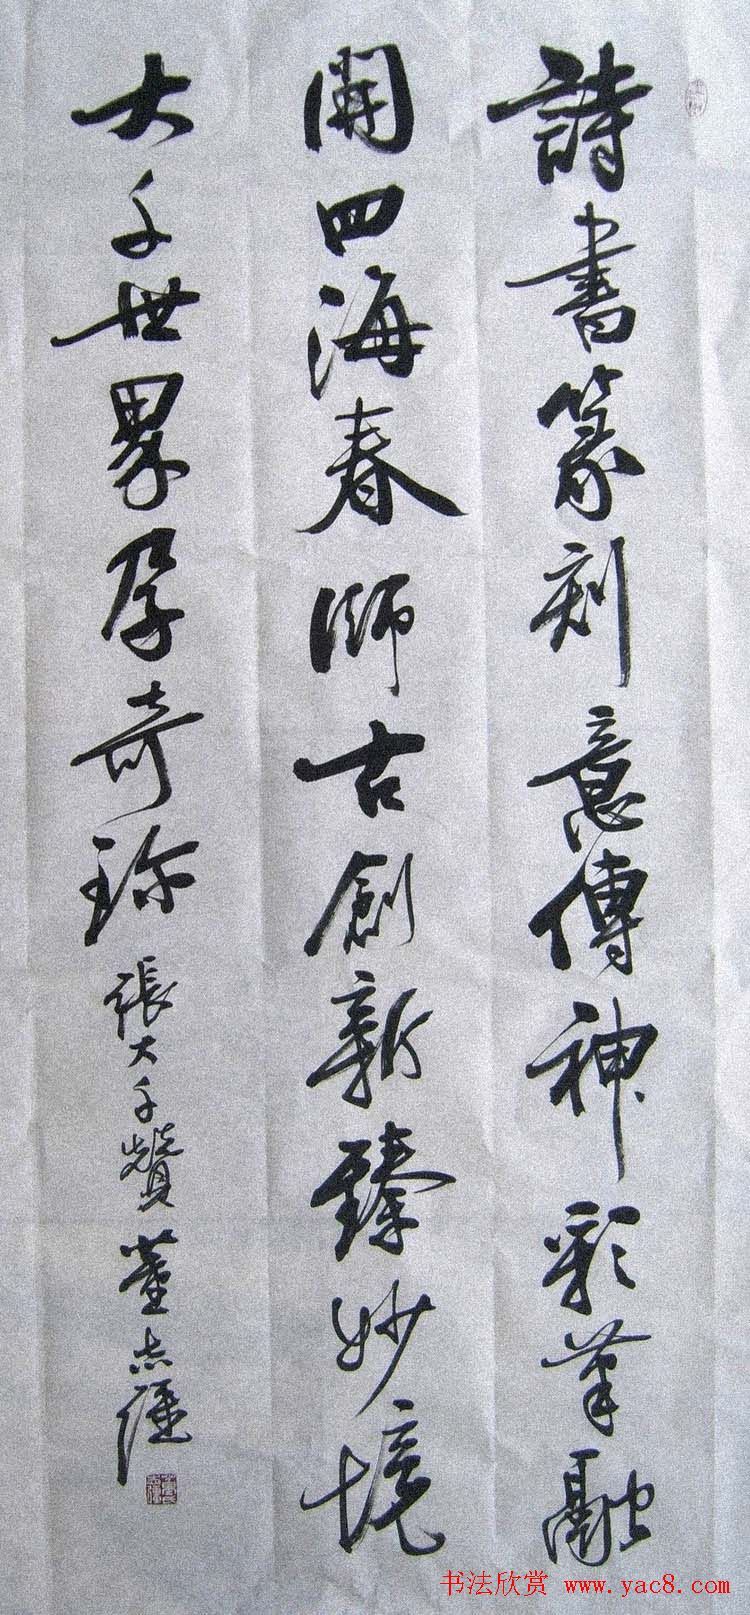 詩書篆刻意傳神彩筆融
開四海春師古創新臻妙境
大千世界孕奇珍
張大千贊 董志强
书法欣赏 www.yac8.com